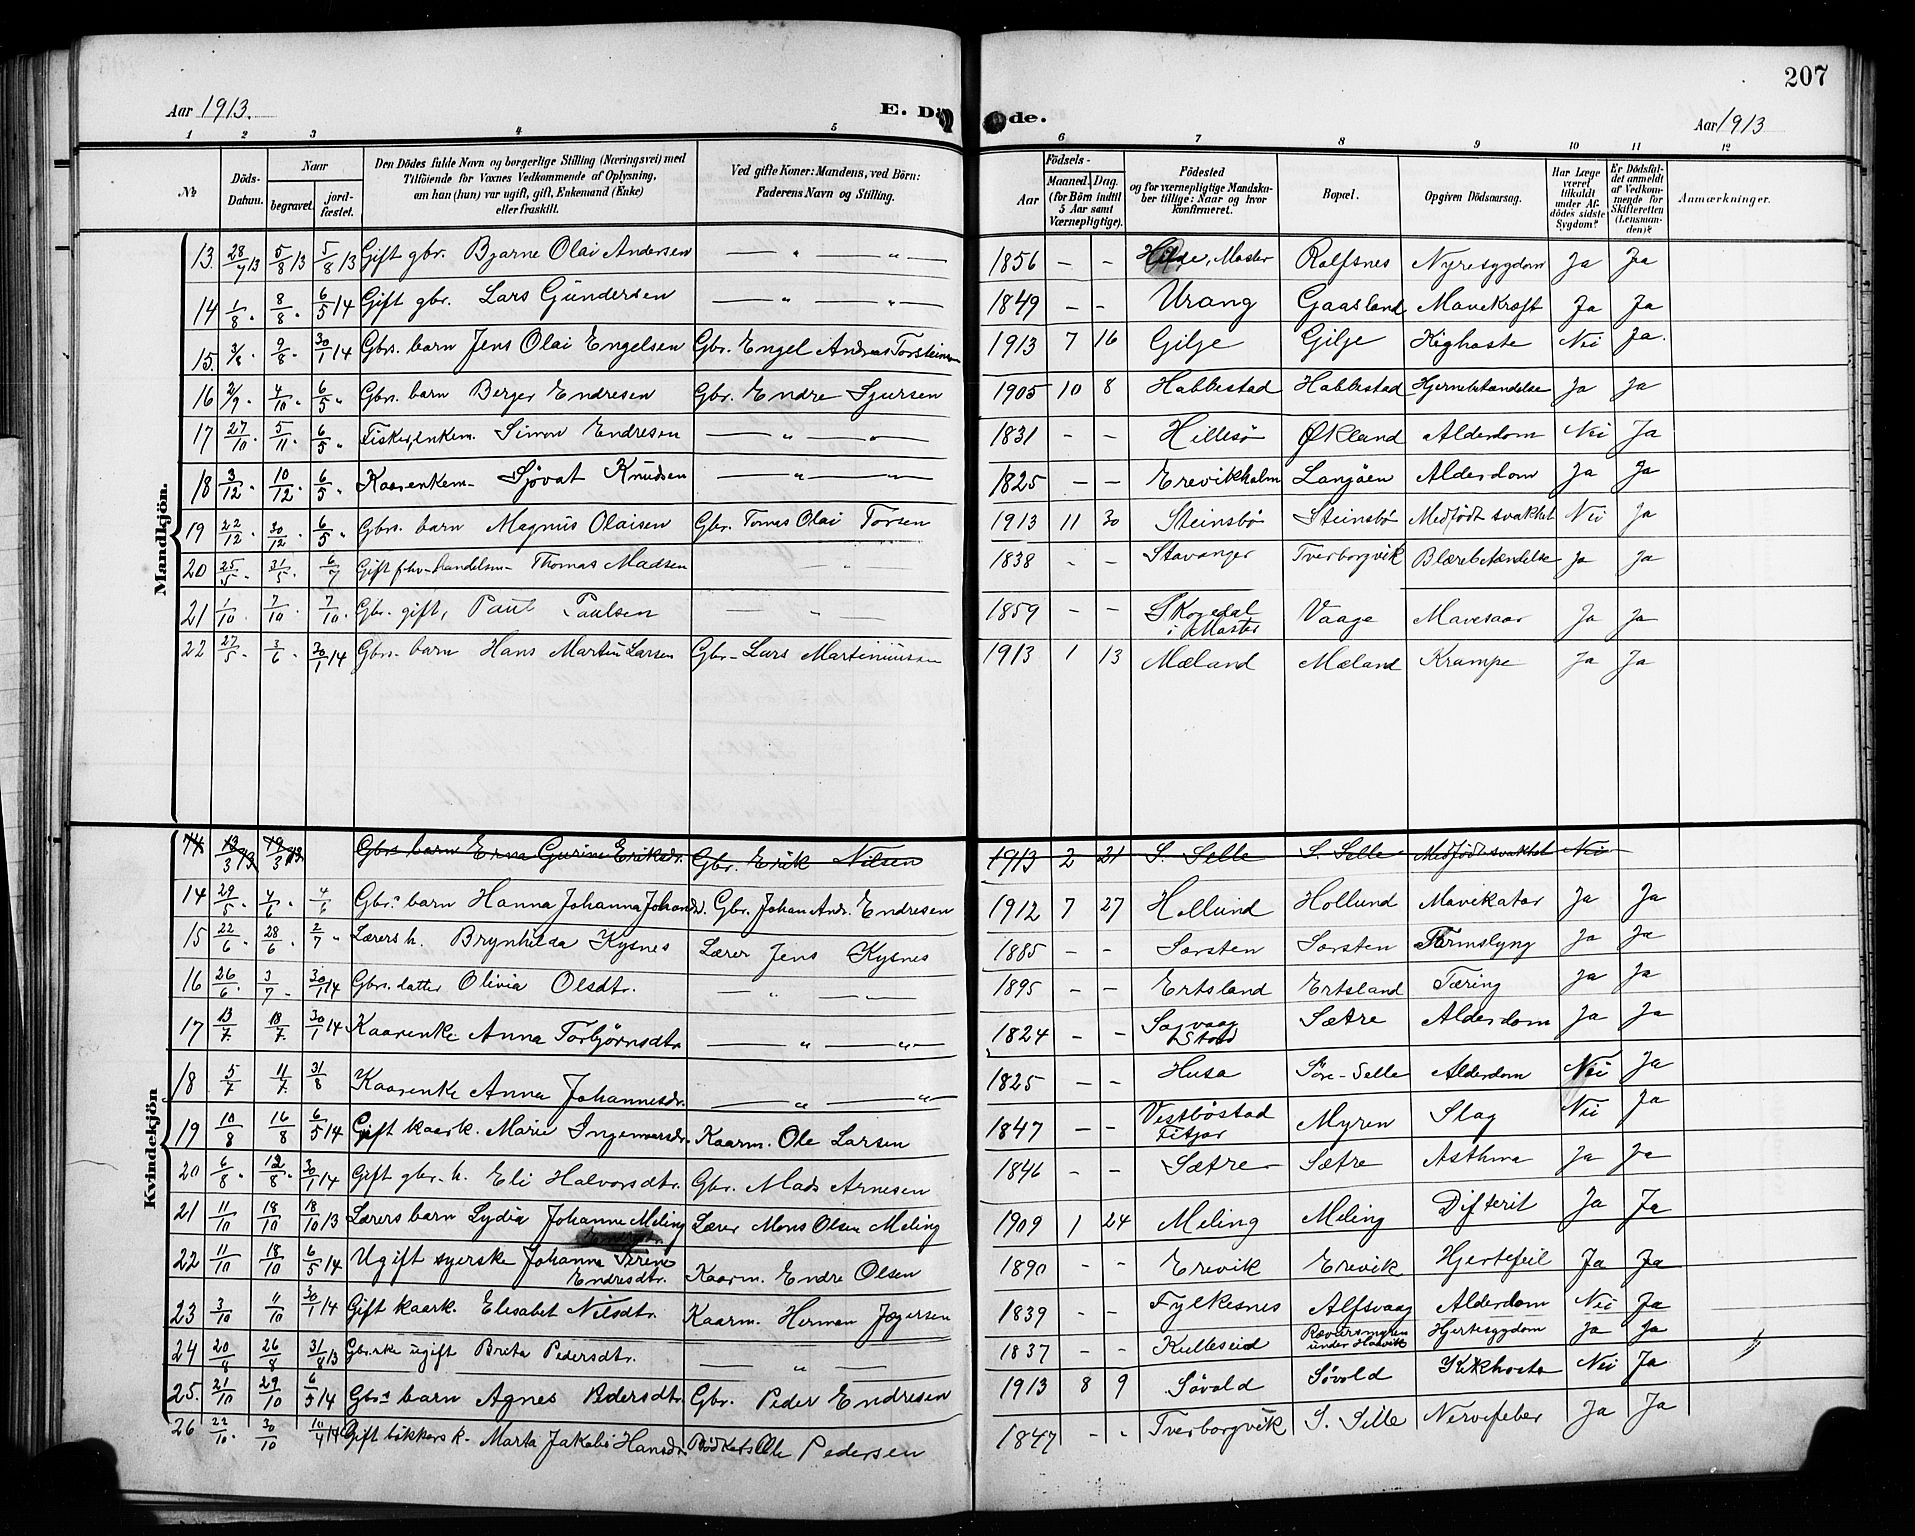 207
Aar 1913.
E. Dø de.
Aar 1913
1 2 3 4 5 6 7 8 9 10 11 12
№
Döds-Datum.
Naar
begravet.
jord-fæstet.
Den Dödes fulde Navn og borgerlige Stilling (Næringsvei) med
Tilföiende for Voxnes Vedkommende af Oplysning,
om han (hun) var ugift, gift, Enkemand (Enke)
eller fraskilt.
Ved gifte Koner: Mandens, ved Börn:
Faderens Navn og Stilling.
Födsels-
Aar
Maaned. Dag.
(for Börn indtil
5 Aar samt
Værnepligtige).
Födested
og for værnepligtige Mandska-
ber tillige: Naar og hvor
konfirmeret.
Bopæl.
Opgiven Dödsaarsag.
Har Læge
været
tilkaldt
under Af-
dödes sidste
Sygdom?
Er Dödsfal-
det anmeldt
af Vedkom-
mende for
Skifteretten
(Lensman-
den)?
Anmærkninger.
Mandkjön.
13. 28/7 13 5/8 13 5/8 13 Gift gbr. Bjarne Olai Andersen — " — " — 1856 – – Moster Rolfsnes Nyresygdom Ja Ja
14 1/8 . 8/8 . 6/5 14 Gift gbr. Lars Gundersen — " — " — 1849 – – Urang Gaasland Mavekræft Ja Ja
15. 3/8 . 9/8 . 30/1 14 Gbrs. barn Jens Olai Engelsen Gbr. Engel Andreas Torsteinsen 1913 7 16 Gilje Gilje Kighoste Nei Ja.
16 2/9 . 4/10 . 6/5 " Gbrs. barn Berger Endresen Gbr. Endre Sjursen 1905 10 8 Habbestad Habbestad Hjernebetændelse Ja Ja
17 27/10 . 5/11 . 6/5 " Fisker, enkem. Simon Endresen — " — " — 1831 – – Hillesø Økland Alderdom Nei Ja
18 3/12 . 10/12 . 6/5 " Kaarenkem. Sjövat Knudsen — " — " — 1825 – – Erevikholm Langöen Alderdom Ja Ja
19 22/12 . 30/12 . 6/5 " Gbrs. barn Magnus Olaisen Gbr. Tomas Olai Torsen 1913 11 30 Steinsbø Steinsbø Medfødt svakhet Nei Ja
20 25/5 . 31/5 . 6/7 Gift fhv. handelsm. Thomas Madsen — " — 1838 – – Stavanger Tverborgvik Blærebetændelse Ja Ja
21 1/10 . 7/10 . 7/10 . Gbr. gift, Paul Paulsen — " — 1859 – – Skogedal i Moster Vaage Mavesaar Ja Ja
22 27/5 . 3/6 . 30/1 14 Gbrs. barn Hans Martin Larsen Gbr. Lars Martiniussen 1913 1 13 Mæland Mæland Krampe Ja Ja
Kvindekjön
14 13/3 13 19/3 13 Gbrs barn Erna Gurine Eriksdr. Gbr. Erik Nilsen 1913 2 21 S. Selle S. Selle Medfødt svakhet Nei
14 29/5 . 4/6 . 4/6 Gbrs barn Hanna Johanna Johansdr. Gbr. Johan Andr. Endresen 1912 7 27 Hollund Hollund Mavekatar Ja Ja
15 22/6 . 28/6 . 2/7 " Lærers h. Brynhilda Kysnes Lærer Jens Kysnes 1885 – – Sorsten Sorsten Tarmslyng Ja Ja
16 26/6 . 3/7 . 30/1 14 Gbrs. datter Olivia Olsdtr. — " — " — 1895 – – Ertsland Ertsland Tæring Ja Ja
17 13/7. 18/7. 30/1 14 Kaarenke Anna Torbjørnsdtr. — " — " — 1824 – – Sagvaag Stord Sætre Alderdom Ja Ja
18 5/7 11/7. 31/8 Kaarenke Anna Johannesdr. — " — " — 1825 – – Husa Søre-Selle Alderdom Nei Ja
19 10/8 16/8 6/5 14 Gift kaark. Marie Ingemarsdr. Kaarm. Ole Larsen 1847 – – Vestbøstad Fitjar Myren Slag Nei Ja
20 6/8 . 12/8 . 30/1 14 Gift gbr. h. Eli Halvorsdtr. Gbr. Mads Arnesen 1846 – – Sætre Sætre Asthma Ja Ja
21 11/10 18/10 18/10 13 Lærers barn Lydia Johanne Meling Lærer Mons Olsen Meling 1909 1 24 Meling Meling Difterit Ja Ja
22 11/10 18/10 6/5 14 Ugift syerske Johanna Serine Endresdtr. Kaarm. Endre Olsen 1890 – – Erevik Erevik Hjertefeil Ja Ja
23 3/10 11/10 30/1 14 Gift kaark. Elisabet Nilsdtr. Kaarm. Herman Jægersen 1839 – – Fylkesnes Alfsvaag Alderdom Nei Ja
24 20/8 26/8 31/8 13 ugift Breta Pedersdtr. — " — 1837 – – Kulleseid Rævarsmyren under Haavik Hjertesygdom Ja Ja
25. 21/10 29/10 6/5 14 Gbrs barn Agnes Pedersdtr. Gbr. Peder Endresen 1913 8 9 Søvold Søvold Kikhoste Nei Ja
26 22/10. 30/10 10/4 14 Gift bökkers k. Marta Jakobe Hansdr. Bødker Ole Pedersen 1847 – " Tverborgvik S. Selle Nervefeber Ja Ja